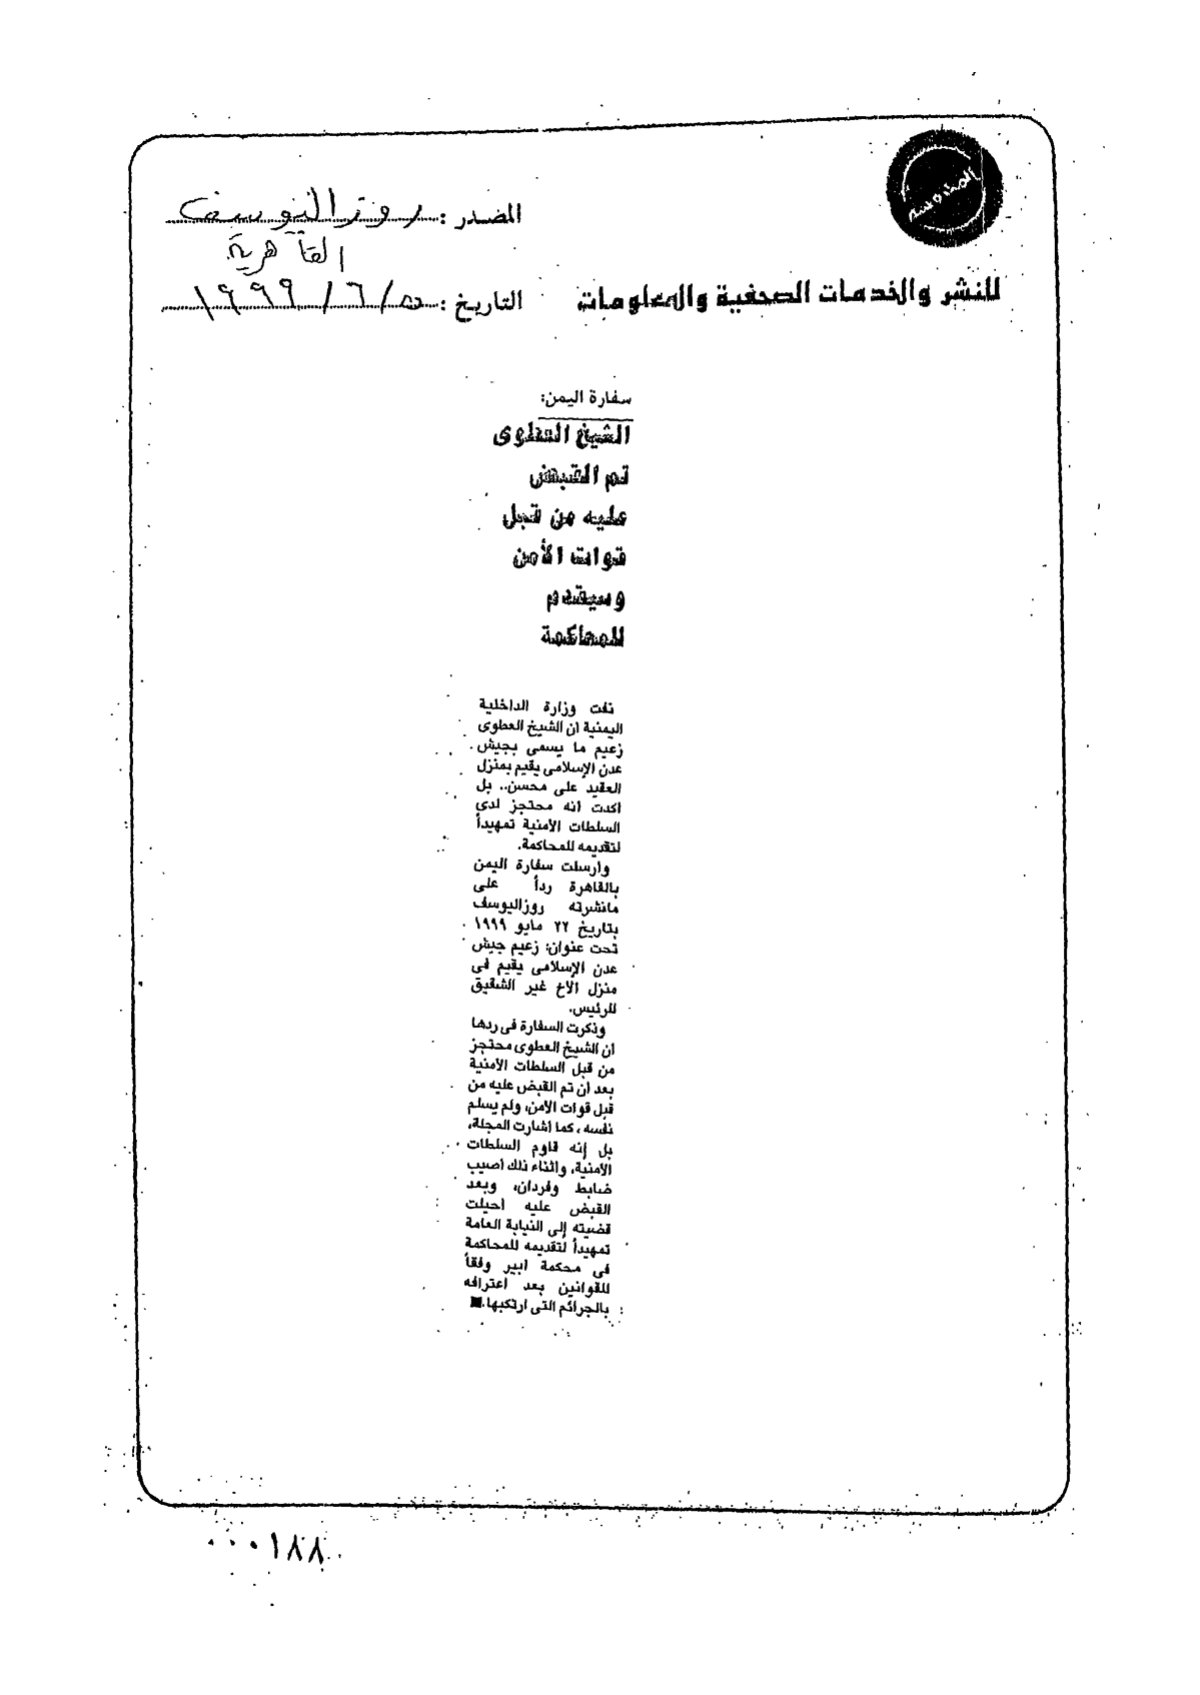 المحروسة
المصدر : روز اليوسف
القاهرية
للنشر والخدمات الصحفية والمعلومات
التاريخ : ٥ / ٦ / ١٩٩٩
سفارة اليمن:
الشيخ
تم القبض
عليه من قبل
قوات الأمن
وسيقدم
للمحاكمة
نفت وزارة الداخلية
اليمنية ان الشيخ العطوى
زعيم ما يسمى بجيش
عدن الإسلامى يقيم بمنزل
العقيد على محسن.. بل
اكدت انه محتجز لدى
السلطات الأمنية تمهيداً
لتقديمه للمحاكمة.
وارسلت سفارة اليمن
بالقاهرة رداً على
مانشرته روزاليوسف
بتاريخ ٢٢ مايو ١٩٩٩
تحت عنوان: زعيم جيش
عدن الإسلامى يقيم فى
منزل الأخ غير الشقيق
للرئيس.
وذكرت السفارة فى ردها
ان الشيخ العطوى محتجز
من قبل السلطات الأمنية
بعد أن تم القبض عليه من
قبل قوات الأمن، ولم يسلم
نفسه، كما أشارت المجلة،
بل إنه قاوم السلطات
الأمنية، واثناء ذلك أصيب
ضابط وفردان، وبعد
القبض عليه احيلت
قضيته إلى النيابة العامة
تمهيداً لتقديمه للمحاكمة
فى محكمة ابير وفقاً
للقوانين بعد اعترافه
بالجرائم التى ارتكبها.
٠٠٠١٨٨